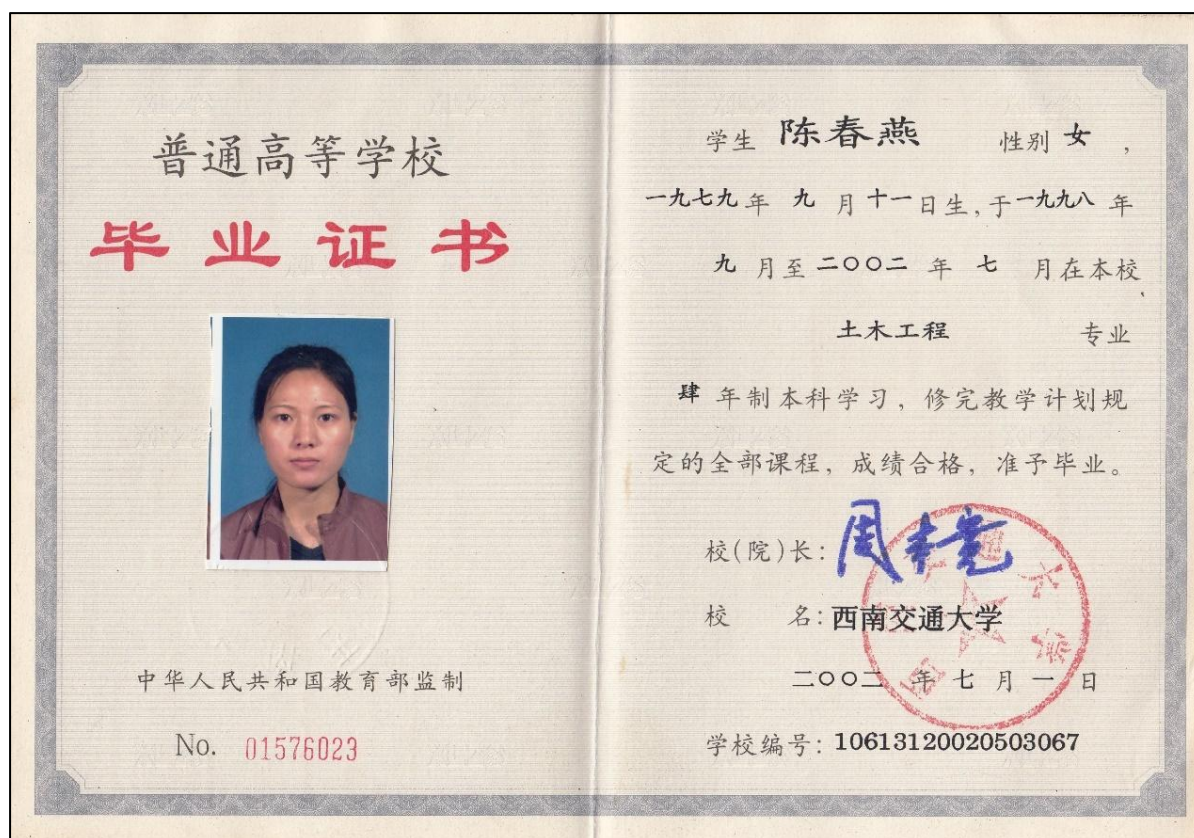 普通高等学校
毕业证书
中华人民共和国教育部监制
No. 01576023
学生 陈春燕 性别 女,
一九七九年 九 月十一日生,于一九九八 年
九 月至二〇〇二 年 七 月在本校
土木工程 专业
肆 年制本科学习，修完教学计划规
定的全部课程，成绩合格，准予毕业。
校(院)长:
校 名:西南交通大学
二〇〇二 年 七 月 一 日
学校编号:10613120020503067
西南交通大学